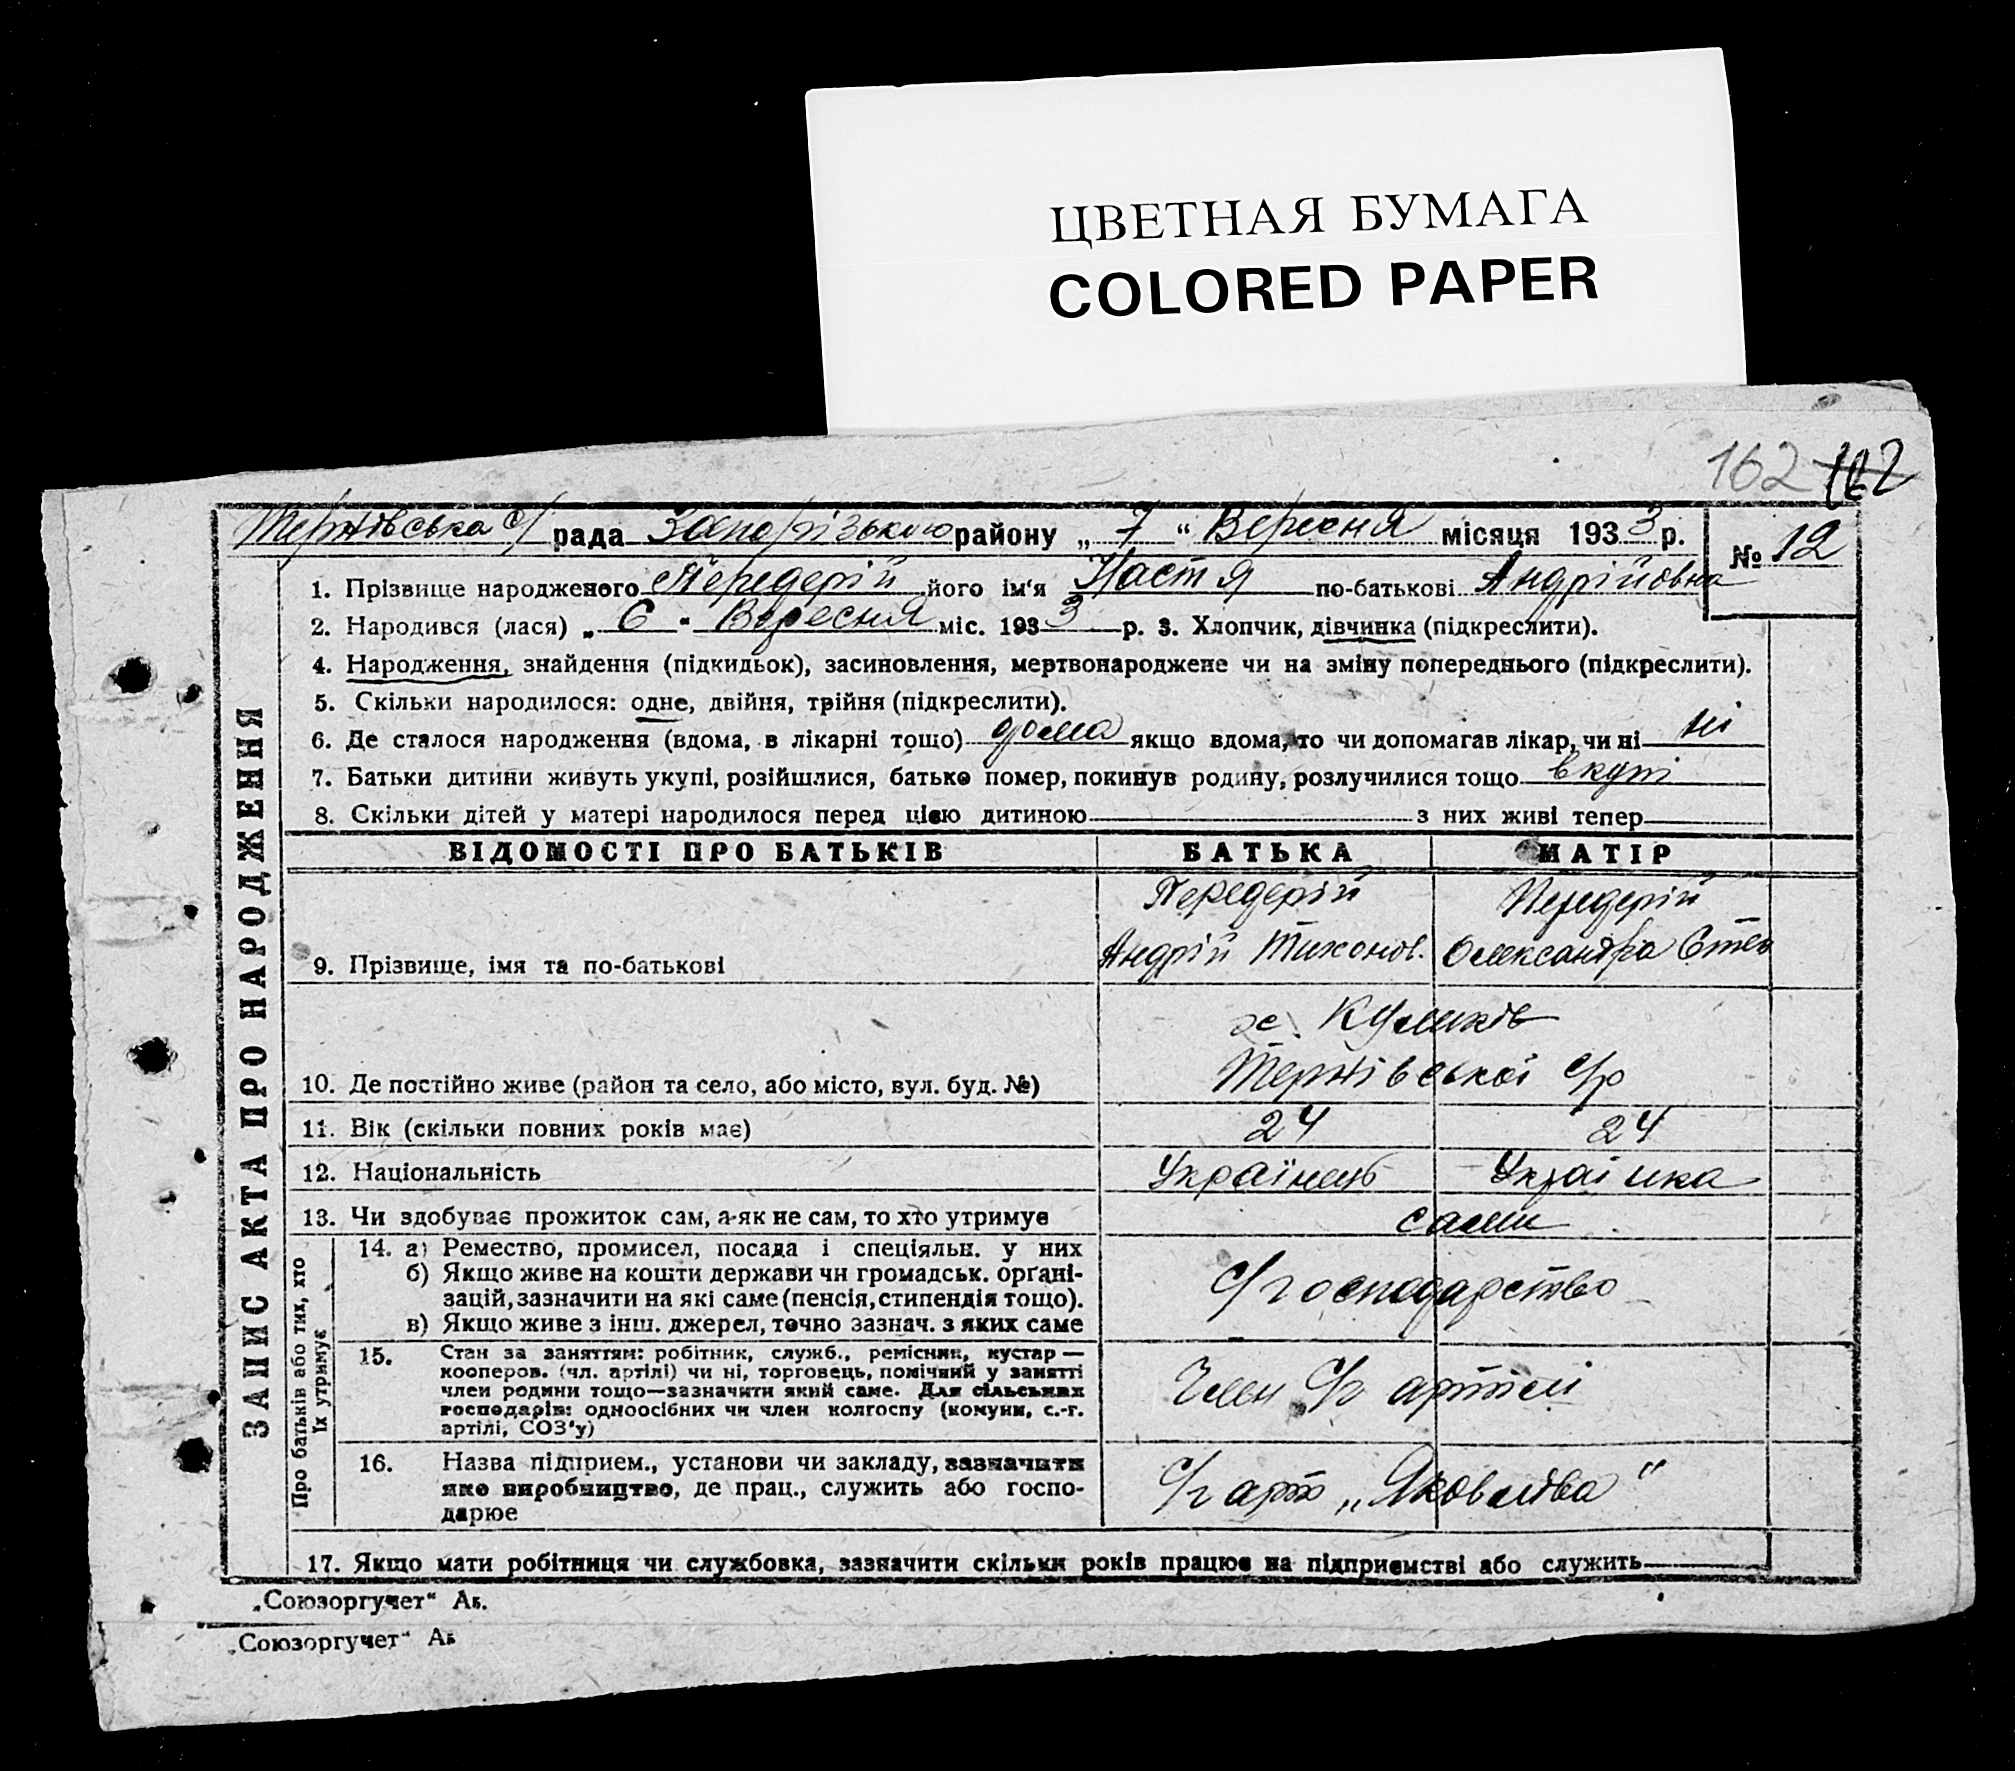 ЦВЕТНАЯ БУМАГА
COLORED PAPER
162 162
Тернівська с/ рада Запорізького району „ 7 “ Вересня місяця 1933 р. № 12
1. Прізвище народженого Передерій його ім‘я Настя по-батькові Андрійовна
2. Народився (лася) „ 6 “ Вересня міс. 1933 р. 3. Хлопчик, дівчинка (підкреслити).
4. Народження, знайдення (підкидьок), засиновлення, мертвонароджене чи на зміну попереднього (підкреслити).
5. Скільки народилося: одне, двійня, трійня (підкреслити).
6. Де сталося народження (вдома, в лікарні тощо) дома якщо вдома, то чи допомагав лікар, чи ні ні
7. Батьки дитини живуть укупі, розійшлися, батько помер, покинув родину, розлучилися тощо вкупі
8. Скільки дітей у матері народилося перед цією дитиною з них живі тепер
ЗАПИС АКТА ПРО НАРОДЖЕННЯ
ВІДОМОСТІ ПРО БАТЬКІВ БАТЬКА МАТІР
Передерій Передерій
9. Прізвище, імя та по-батькові Андрій Тихонов. Олександра Степ
х. Куликів
10. Де постійно живе (район та село, або місто, вул. буд. №) Тернівської с/р
11. Вік (скільки повних років має) 24 24
12. Національність Українець Українка
13. Чи здобуває прожиток сам, а як не сам, то хто утримує сами
Про батьків або тих, хто їх утримує
14. а) Ремество, промисел, посада і спеціяльн. у них
б) Якщо живе на кошти держави чи громадськ. організацій, зазначити на які саме (пенсія, стипендія тощо).
в) Якщо живе з інш. джерел, точно зазнач. з яких саме
с/господарство
15. Стан за заняттям: робітник, служб., ремісник, кустар—
кооперов. (чл. артілі) чи ні, торговець, помічний у занятті
член родини тощо—зазначити який саме. Для сільських
господарів: одноосібних чи член колгоспу (комуни, с.-г.
артілі, СОЗ‘у)
Член С/г артілі
16. Назва підприєм., установи чи закладу, зазначити
яке виробництво, де прац., служить або госпо-
дарює
С/г арт „Яковлєва“
17. Якщо мати робітниця чи службовка, зазначити скільки років працює на підприємстві або служить
„Союзоргучет“ Ає.
„Союзоргучет“ Ає